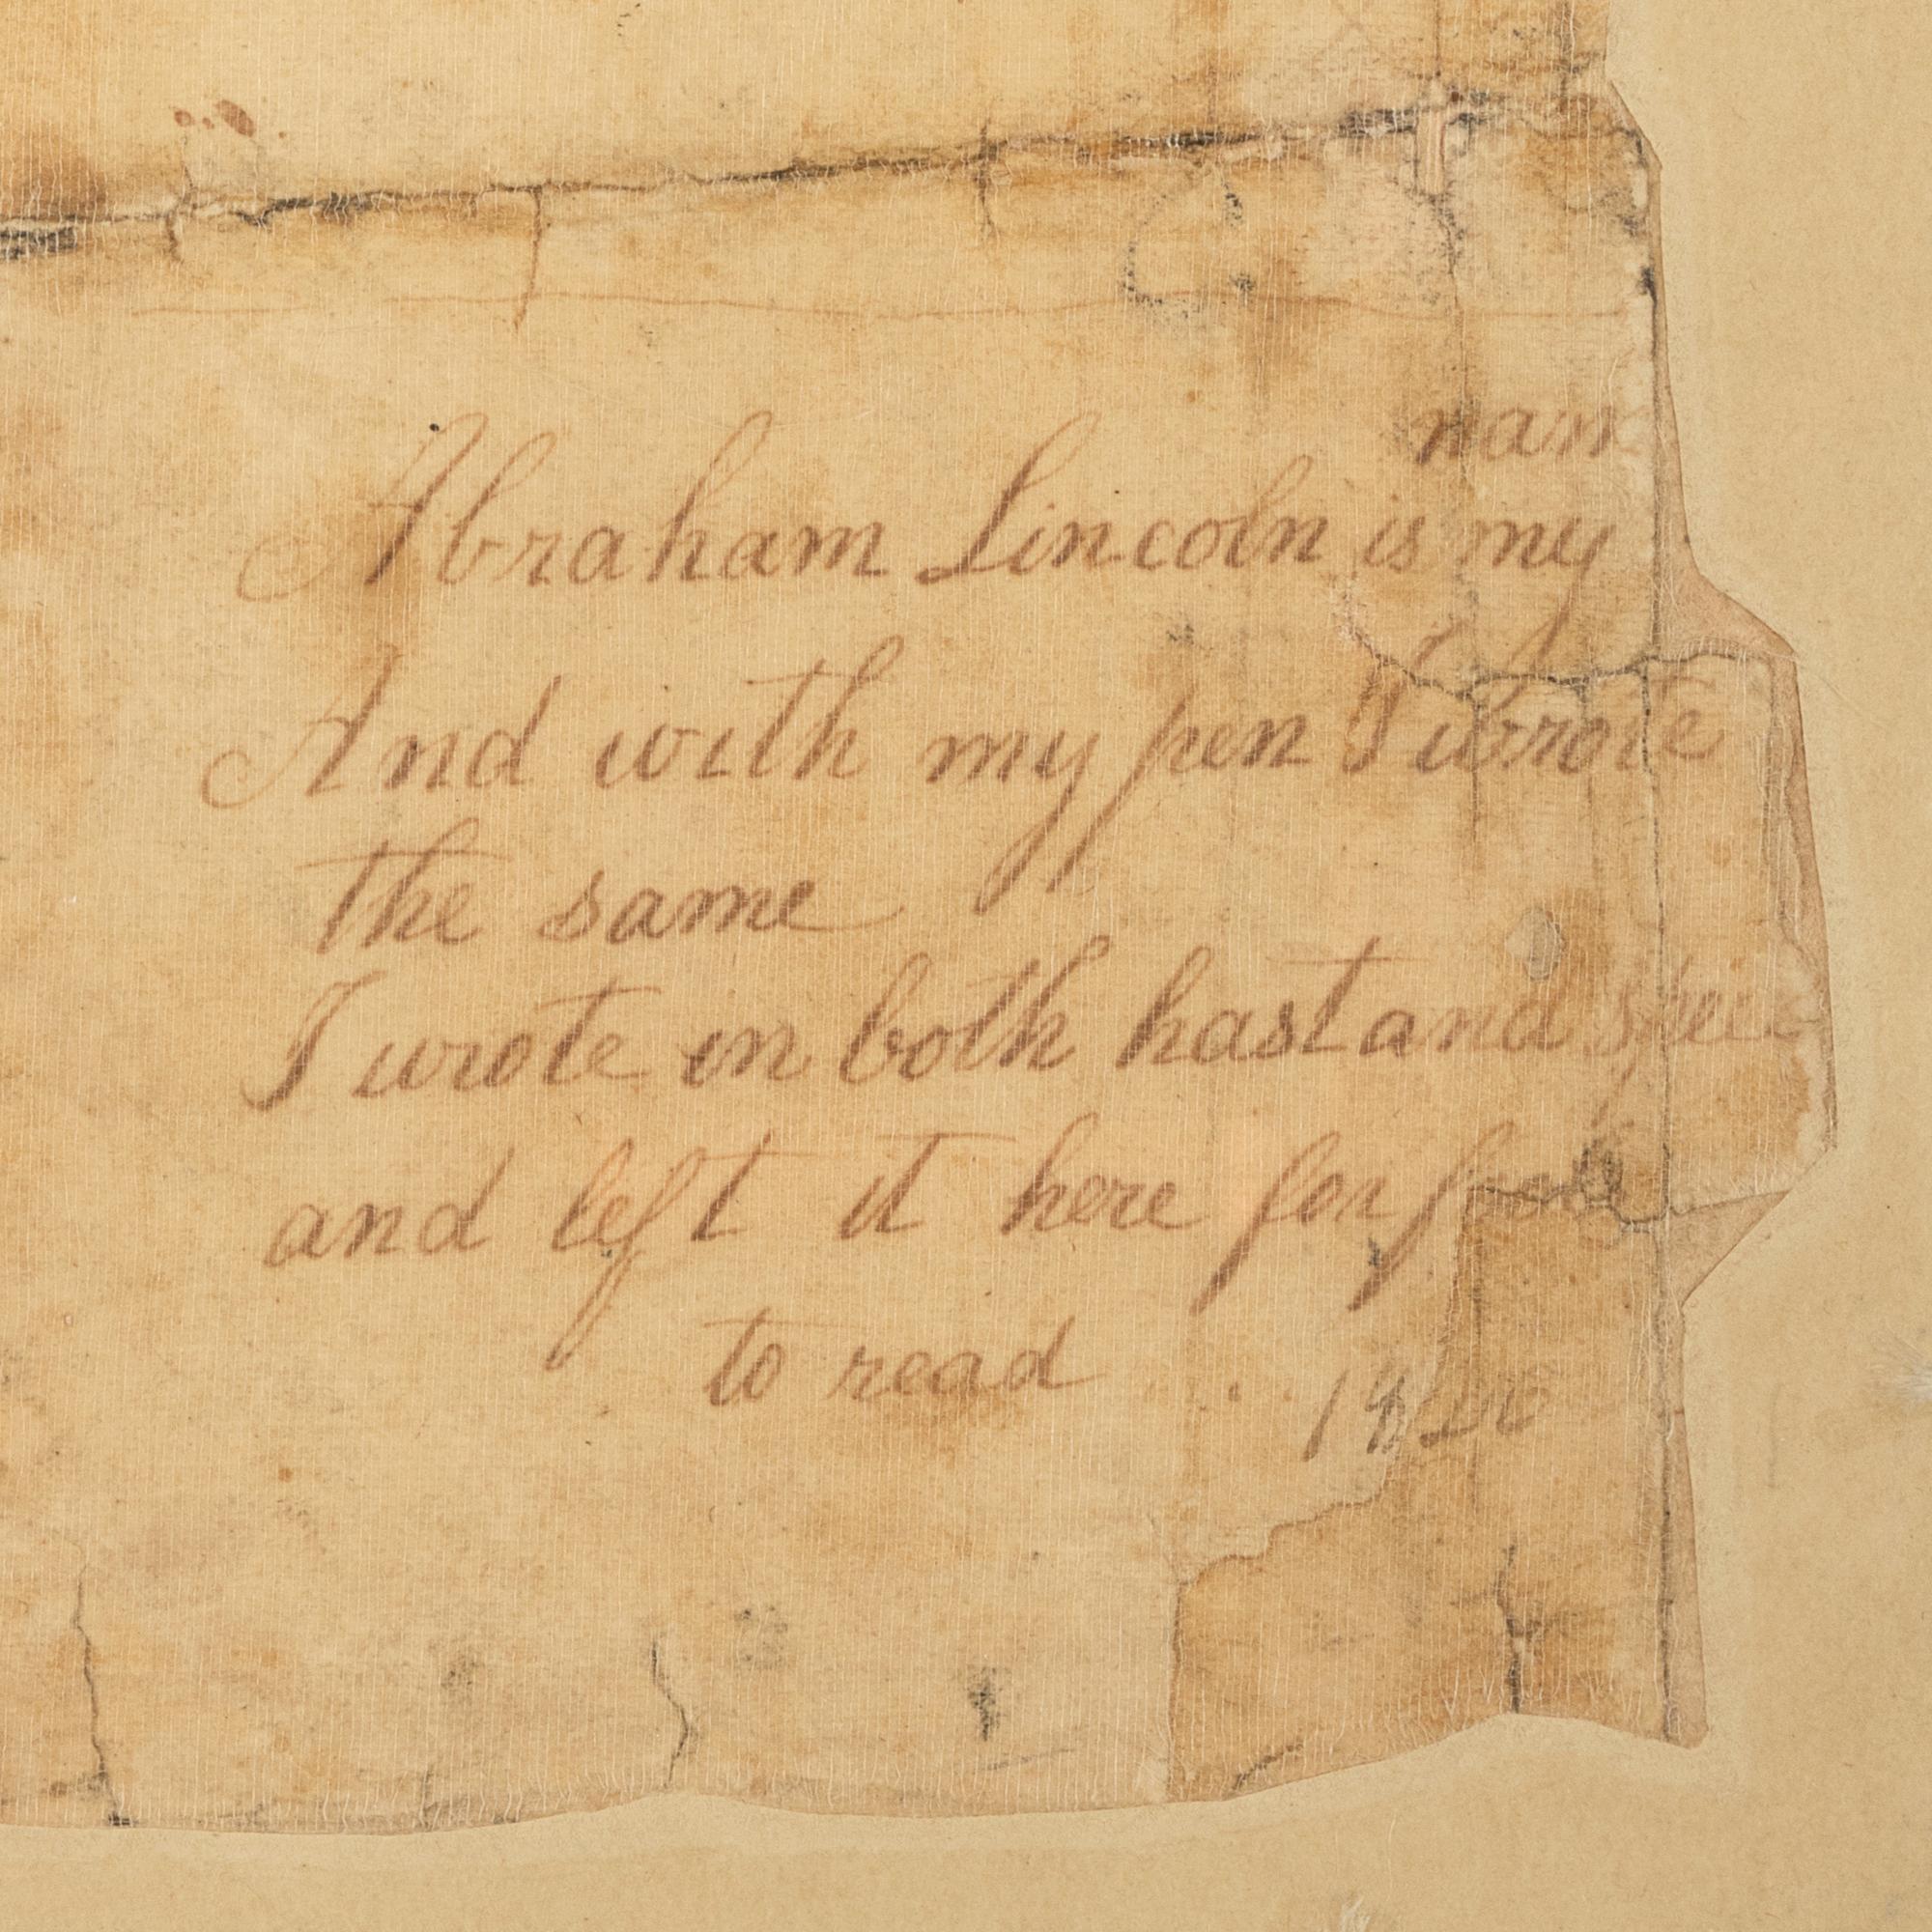 nam
Abraham Lincoln is my
And with my pen I wrote
the same
I wrote in both hast and spee
and left it here for fools
to read